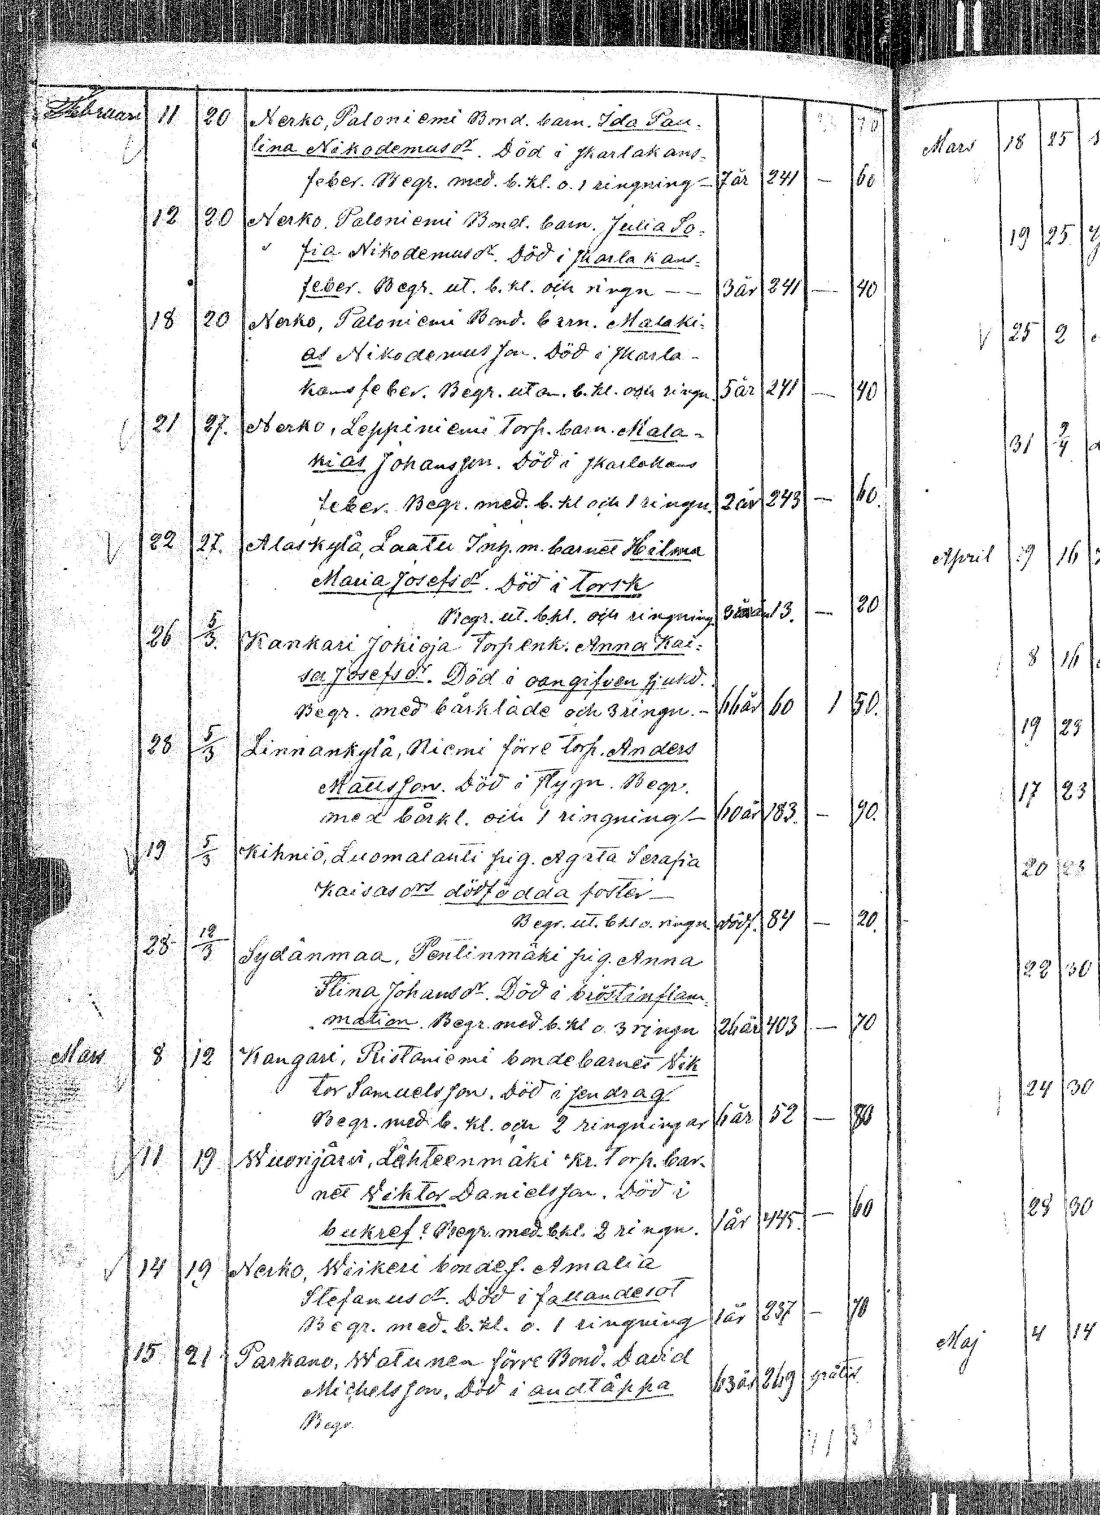 Februari 11 20 Nerko, Paloniemi Bond. barn. Ida Pau-
lina Nikodemusdr. Död i skarlakans-
feber. Begr. med. b. kl. o. 1 ringning — 7 år 241 — 60
12 20 Nerko, Paloniemi Bond. barn. Julia So-
fia Nikodemusdr. Död i skarlakans-
feber. Begr. ut. b. kl. och ringn — — 3 år 241 — 40
18 20 Nerko, Paloniemi Bond. barn. Malaki-
as Nikodemusson. Död i skarla-
kansfeber. Begr. utan. b. kl. och ringn. 5 år 241 — 40
21 27. Nerko, Leppiniemi Torp. barn. Mala-
kias Johansson. Död i skarlakans
feber. Begr. med. b. kl och 1 ringn. 2 år 243 — 60.
22 27. Alaskylä, Laatu Inh. m. barnet Hilma
Maria Josefsdr. Död i torsk
Begr. ut. b.kl. och ringning 3 13. — 20
26 5/3. Kankari Jokioja Torp.enk. Anna Kai-
sa Josefsdr. Död i oangifven sjukd.
Begr. med bårkläde och 3 ringn. — 66 år 60 1 50.
28 5/3 Linnankylä, Niemi förre Torp. Anders
Mattsson. Död i stygn. Begr.
med bårkl. och 1 ringning — 60 år 183. — 90.
19 5/3 Kihniö, Luomalanti pig. Agata Serafia
Kaisasdrs dödfödda foster —
Begr. ut. b.kl o. ringn. dödf. 84 — 20.
28 12/3 Sydänmaa, Pentinmäki pig. Anna
Stina Johansdr. Död i bröstinflam-
mation. Begr. med. b. kl o. 3 ringn 26 år 403 — 70
Mars 8 12 Kangari, Ristaniemi bondebarnet Vik
tor Samuelsson. Död i sendrag
Begr. med b. kl. och 2 ringningar 6 år 52 — 80
11 19 Wuorijärvi, Lähteenmäki Kr. Torp. bar-
net Viktor Danielsson. Död i
bukref? Begr. med. b.kl. 2 ringn. 1 år 445. — 60
14 19 Nerko, Wiikeri bondef. Amalia
Stefanusdr. Död i fallandesot
Begr. med. b. kl. o. 1 ringning 1 år 237 — 70
15 21 Parkano, Watunen förre Bond. David
Michelsson, Död i andtäppa 63 år 269 gratis.
Begr.
Mars 18 25
19 25
25 2
31 2/4
April 9 16
8 16
19 23
17 23
20 23
22 30
24 30
28 30
Maj 4 14